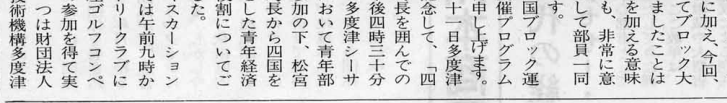 に加え、今回、
てブロック大
ましたことは
を加える意味
も、非常に意
して部員一同
す。
国ブロック運
催プログラム
申し上げます。
十一日多度津
念して、「四
長を囲んでの
後四時三十分
多度津シーサ
おいて青年部
加の下、松宮
長から四国を
した青年経済
割についてご
た。
スカーション
は午前九時か
リークラブに
ゴルフコンペ
参加を得て実
つは財団法人
術機構多度津